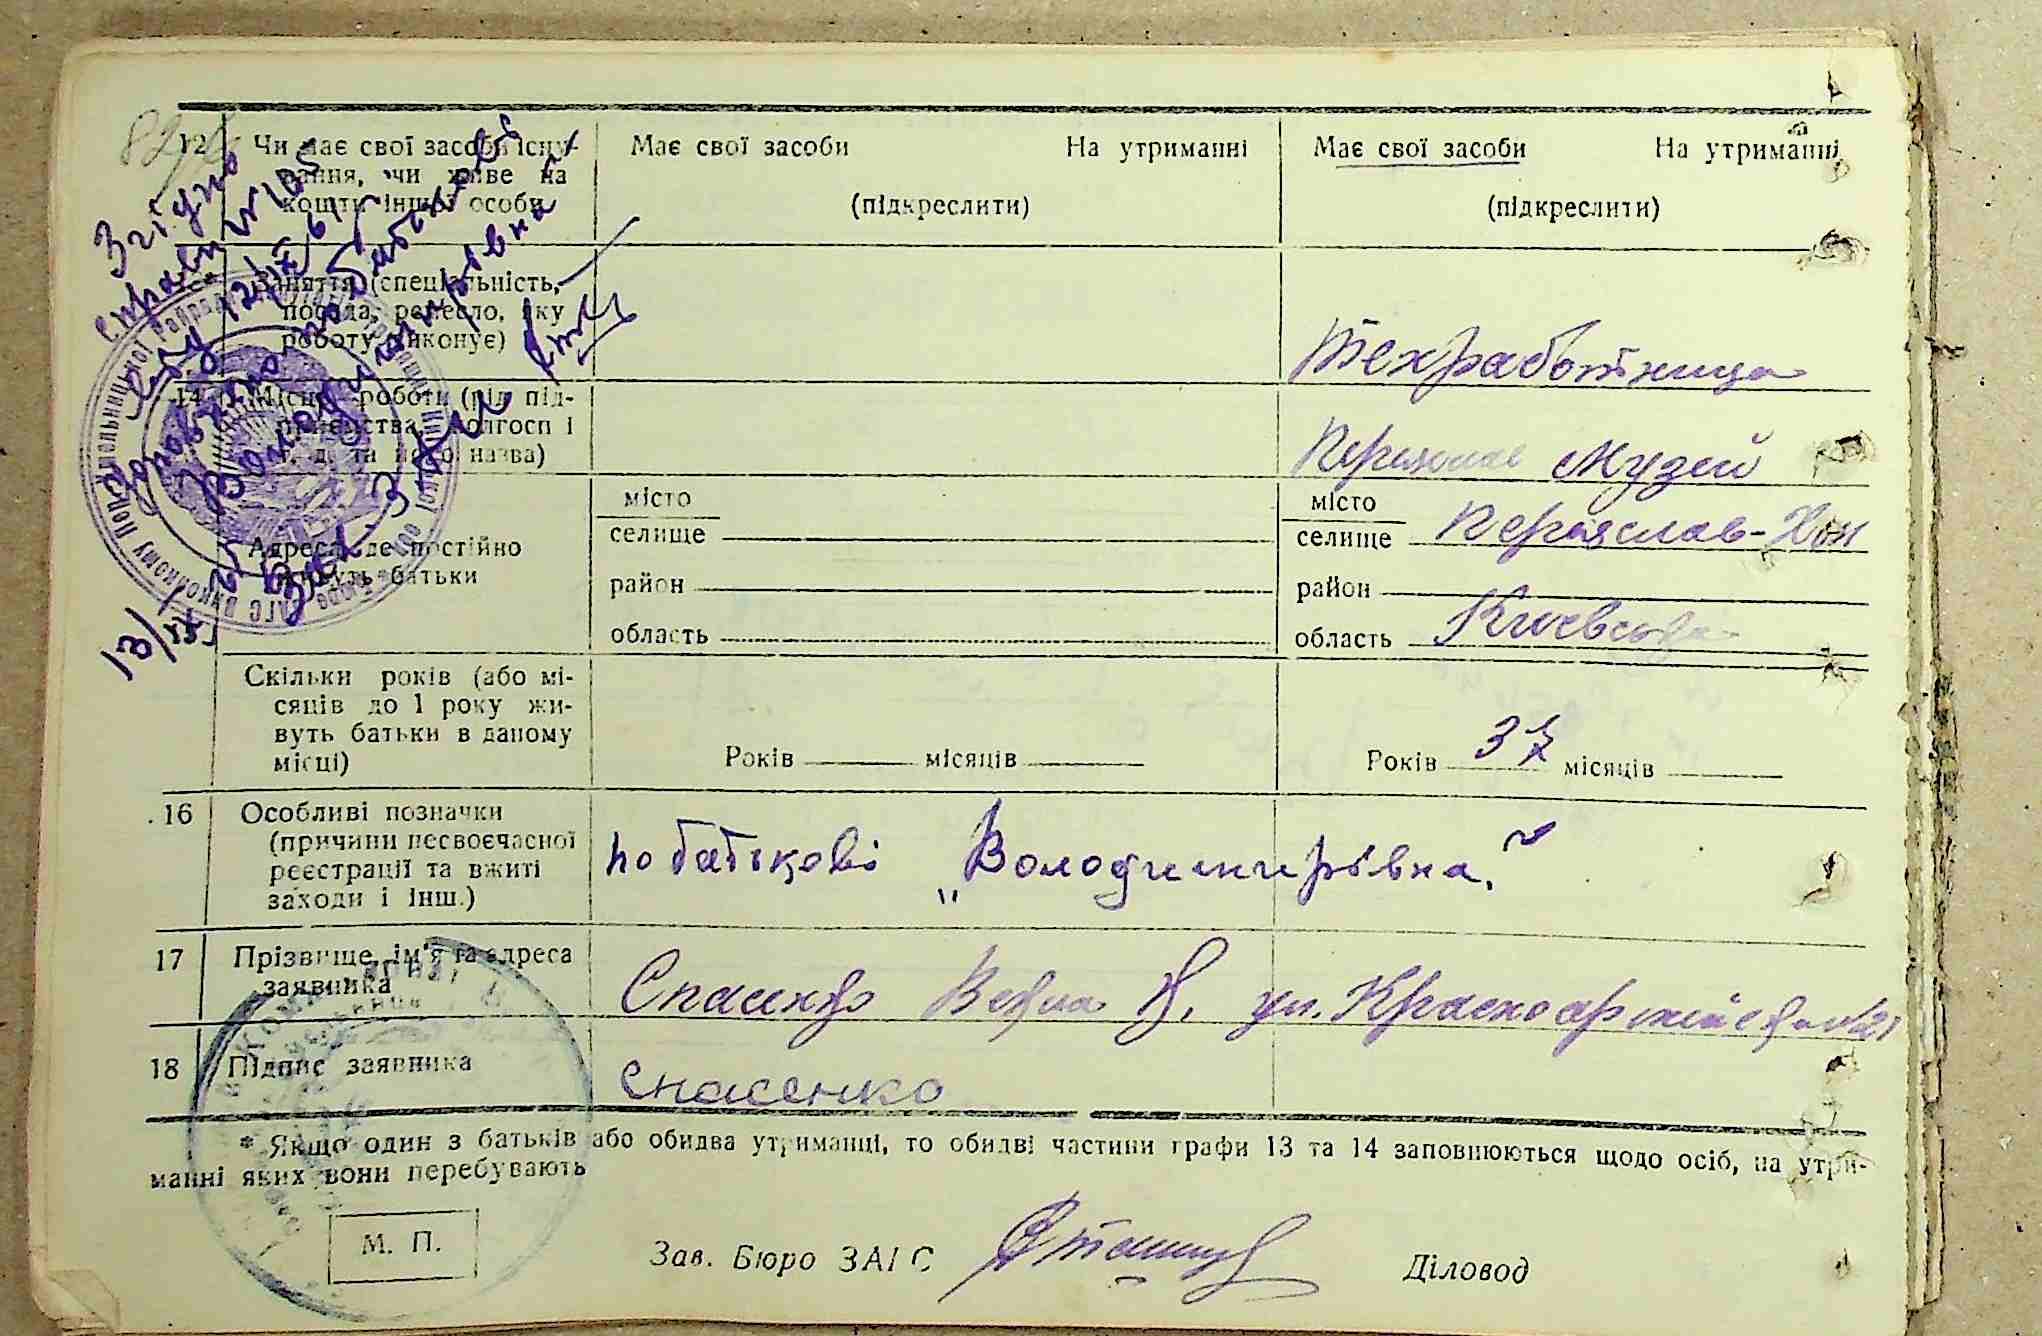 12 Чи має свої засоби існу-
вання, чи живе на
кошти іншої особи
Має свої засоби На утриманні
(підкреслити)
Має свої засоби На утриманні
(підкреслити)
Згідно
справи № 105
від 12/IX 61 р.
доповнено по батькові
Володимирівна
13/IX
Заняття (спеціальність,
посада, ремесло, яку
роботу виконує)
Техработница
14 Місце роботи (рід під-
приємства, колгосп і
т. д. та його назва)
Музей
Адреса, де постійно
живуть батьки
місто
селище
район
область
місто
селище Переяслав-Хм
район
область Киевская
Скільки років (або мі-
сяців до 1 року жи-
вуть батьки в даному
місці)
Років місяців
Років 37 місяців
16 Особливі позначки
(причини несвоєчасної
реєстрації та вжиті
заходи і інш.)
по батькові „Володимирівна."
17 Прізвище, ім'я та адреса
заявника
ул. Красноармейская
18 Підпис заявника
Спасенко
* Якщо один з батьків або обидва утриманні, то обидві частини графи 13 та 14 заповнюються щодо осіб, на утри-
манні яких вони перебувають
М. П.
Зав. Бюро ЗАГС
Діловод